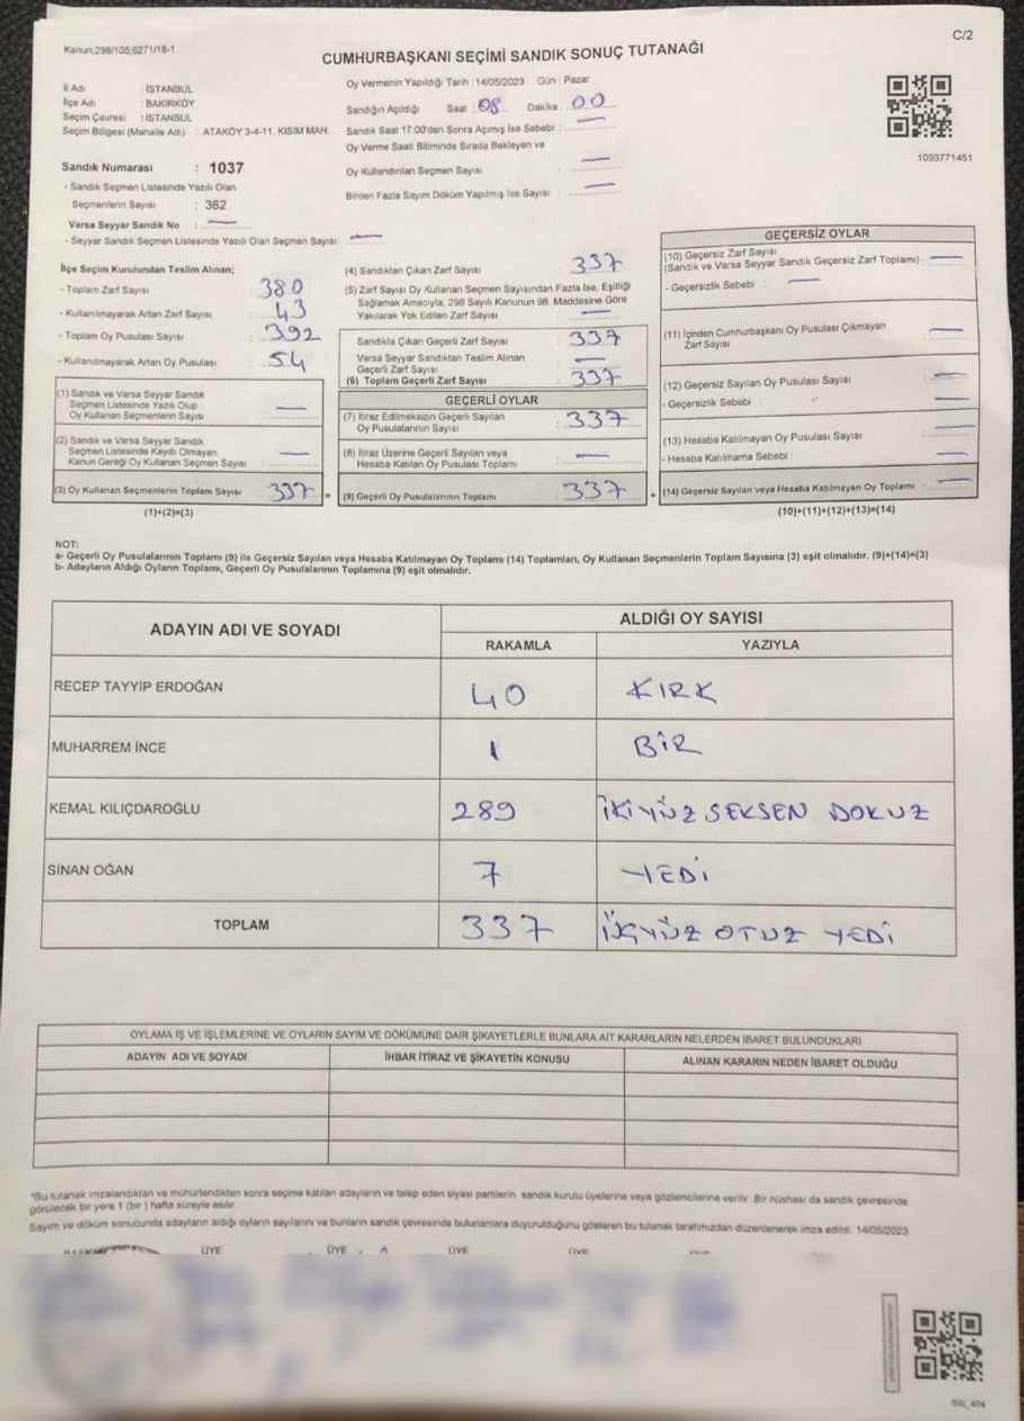 Kanun:298/105;6271/18-1
C/2
CUMHURBAŞKANI SEÇİMİ SANDIK SONUÇ TUTANAĞI
İl Adı : İSTANBUL
İlçe Adı : BAKIRKÖY
Seçim Çevresi : İSTANBUL
Seçim Bölgesi (Mahalle Adı) : ATAKÖY 3-4-11. KISIM MAH.
Sandık Numarası : 1037
- Sandık Seçmen Listesinde Yazılı Olan
Seçmenlerin Sayısı : 362
Varsa Seyyar Sandık No : —
- Seyyar Sandık Seçmen Listesinde Yazılı Olan Seçmen Sayısı : —
Oy Vermenin Yapıldığı Tarih : 14/05/2023 Gün : Pazar
Sandığın Açıldığı Saat : 08 Dakika : 00
Sandık Saat 17:00'dan Sonra Açılmış İse Sebebi : —
Oy Verme Saati Bitiminde Sırada Bekleyen ve
Oy Kullandırılan Seçmen Sayısı : —
Birden Fazla Sayım Döküm Yapılmış İse Sayısı : —
1093771451
İlçe Seçim Kurulundan Teslim Alınan;
- Toplam Zarf Sayısı : 380
- Kullanılmayarak Artan Zarf Sayısı : 43
- Toplam Oy Pusulası Sayısı : 392
- Kullanılmayarak Artan Oy Pusulası : 54
(1) Sandık ve Varsa Seyyar Sandık
Seçmen Listesinde Yazılı Olup
Oy Kullanan Seçmenlerin Sayısı —
(2) Sandık ve Varsa Seyyar Sandık
Seçmen Listesinde Kaydı Olmayan
Kanun Gereği Oy Kullanan Seçmen Sayısı —
(3) Oy Kullanan Seçmenlerin Toplam Sayısı 337
(1)+(2)=(3)
(4) Sandıktan Çıkan Zarf Sayısı 337
(5) Zarf Sayısı Oy Kullanan Seçmen Sayısından Fazla İse, Eşitliği
Sağlamak Amacıyla; 298 Sayılı Kanunun 98. Maddesine Göre
Yakılarak Yok Edilen Zarf Sayısı —
Sandıkta Çıkan Geçerli Zarf Sayısı 337
Varsa Seyyar Sandıktan Teslim Alınan
Geçerli Zarf Sayısı —
(6) Toplam Geçerli Zarf Sayısı 337
GEÇERLİ OYLAR
(7) İtiraz Edilmeksizin Geçerli Sayılan
Oy Pusulalarının Sayısı 337
(8) İtiraz Üzerine Geçerli Sayılan veya
Hesaba Katılan Oy Pusulası Toplamı —
(9) Geçerli Oy Pusulalarının Toplamı 337
GEÇERSİZ OYLAR
(10) Geçersiz Zarf Sayısı
(Sandık ve Varsa Seyyar Sandık Geçersiz Zarf Toplamı) —
- Geçersizlik Sebebi : —
(11) İçinden Cumhurbaşkanı Oy Pusulası Çıkmayan
Zarf Sayısı —
(12) Geçersiz Sayılan Oy Pusulası Sayısı —
- Geçersizlik Sebebi : —
(13) Hesaba Katılmayan Oy Pusulası Sayısı —
- Hesaba Katılmama Sebebi : —
(14) Geçersiz Sayılan veya Hesaba Katılmayan Oy Toplamı —
(10)+(11)+(12)+(13)=(14)
NOT:
a- Geçerli Oy Pusulalarının Toplamı (9) ile Geçersiz Sayılan veya Hesaba Katılmayan Oy Toplamı (14) Toplamları, Oy Kullanan Seçmenlerin Toplam Sayısına (3) eşit olmalıdır. (9)+(14)=(3)
b- Adayların Aldığı Oyların Toplamı, Geçerli Oy Pusulalarının Toplamına (9) eşit olmalıdır.
ADAYIN ADI VE SOYADI ALDIĞI OY SAYISI
RAKAMLA YAZIYLA
RECEP TAYYİP ERDOĞAN 40 KIRK
MUHARREM İNCE 1 BİR
KEMAL KILIÇDAROĞLU 289 İKİYÜZ SEKSEN DOKUZ
SİNAN OĞAN 7 YEDİ
TOPLAM 337 ÜÇYÜZ OTUZ YEDİ
OYLAMA İŞ VE İŞLEMLERİNE VE OYLARIN SAYIM VE DÖKÜMÜNE DAİR ŞİKAYETLERLE BUNLARA AİT KARARLARIN NELERDEN İBARET BULUNDUKLARI
ADAYIN ADI VE SOYADI İHBAR İTİRAZ VE ŞİKAYETİN KONUSU ALINAN KARARIN NEDEN İBARET OLDUĞU
*Bu tutanak imzalandıktan ve mühürlendikten sonra seçime katılan adayların ve talep eden siyasi partilerin sandık kurulu üyelerine veya gözlemcilerine verilir. Bir nüshası da sandık çevresinde
görülecek bir yere 1 (bir) hafta süreyle asılır.
Sayım ve döküm sonucunda adayların aldığı oyların sayılarını ve bunların sandık çevresinde bulunanlara duyurulduğunu gösteren bu tutanak tarafımızdan düzenlenerek imza edildi. 14/05/2023
ÜYE ÜYE ÜYE